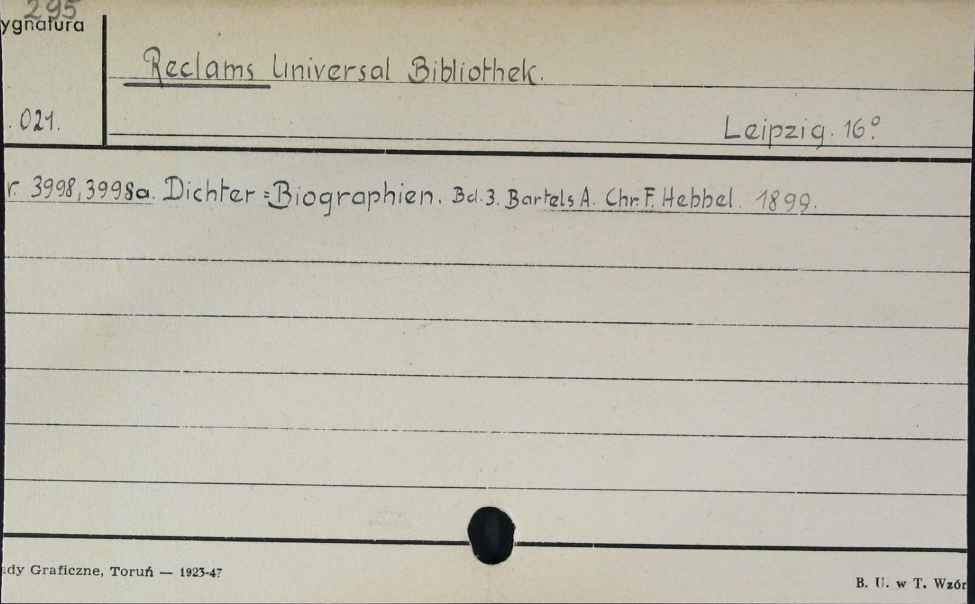 295
ygnatura
Reclams Universal Bibliothek.
. 021.
Leipzig. 16°
r. 3998, 3998a. Dichter=Biographien. Bd. 3. Bartels A. Chr. F. Hebbel. 1899.
ady Graficzne, Toruń — 1923-47
B. U. w T. Wzór